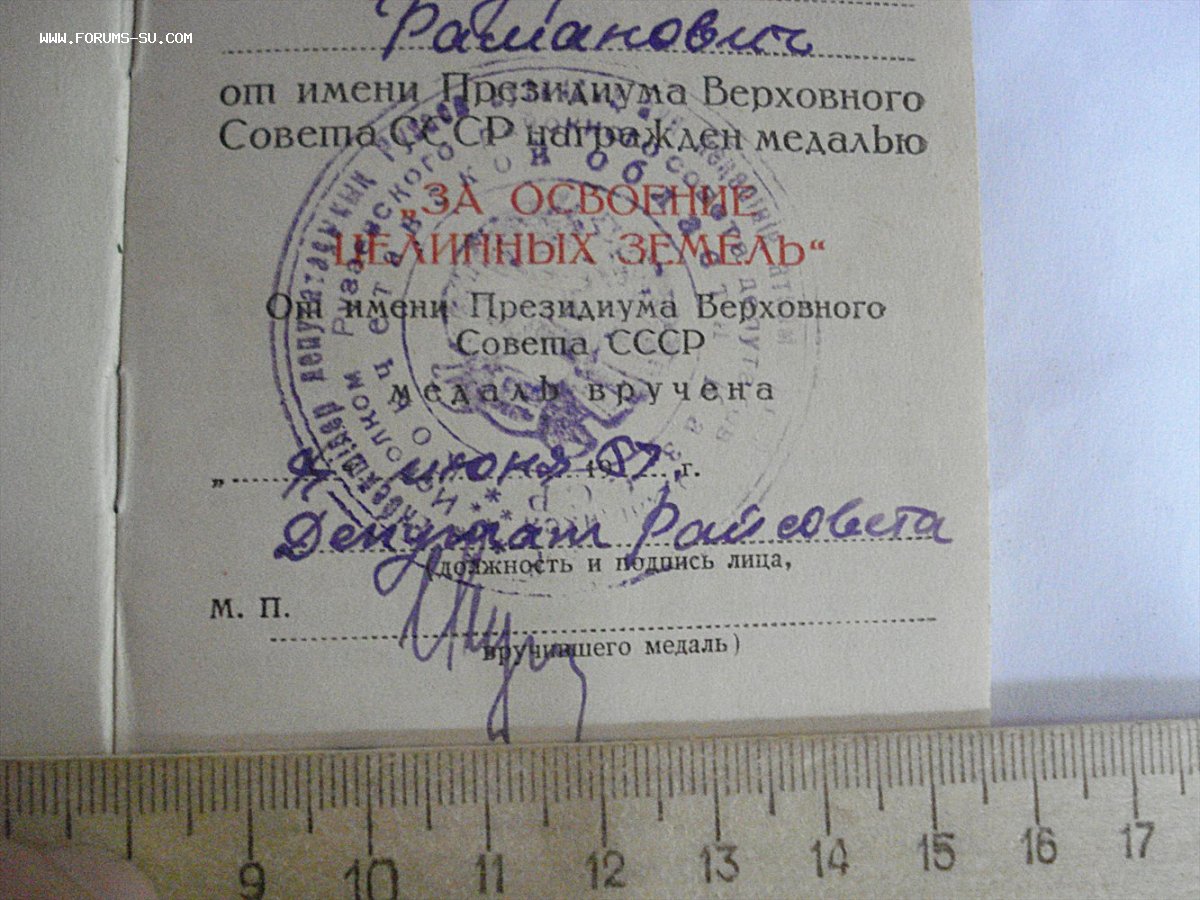 www.forums-su.com
Раманович
от имени Президиума Верховного
Совета СССР награжден медалью
„ЗА ОСВОЕНИЕ
ЦЕЛИННЫХ ЗЕМЕЛЬ“
От имени Президиума Верховного
Совета СССР
медаль вручена
июня 1987 г.
Депутат Райсовета
(должность и подпись лица,
М. П.
вручившего медаль)
9 10 11 12 13 14 15 16 17